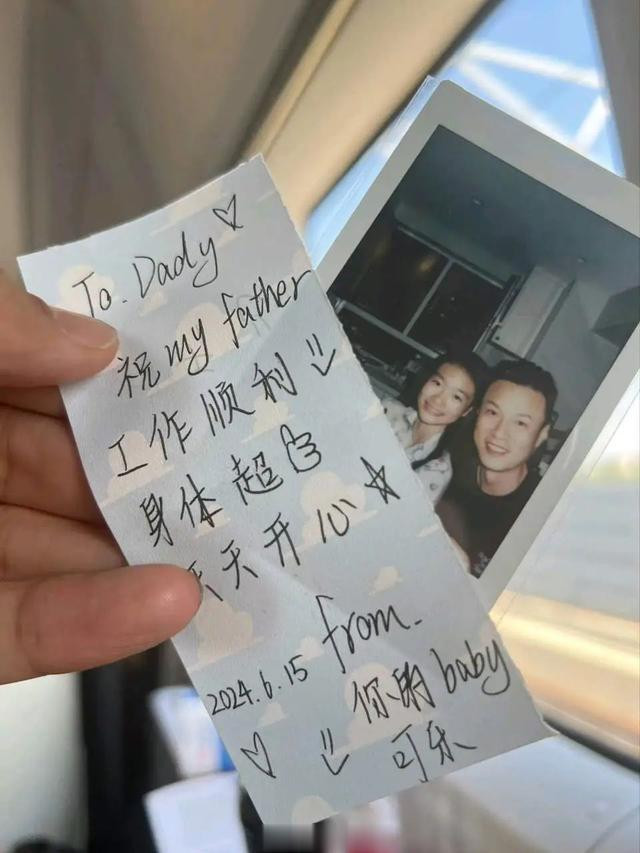 To. Dady
祝my father
工作顺利
身体超
天天开心
from.
2024.6.15
你的baby
可乐